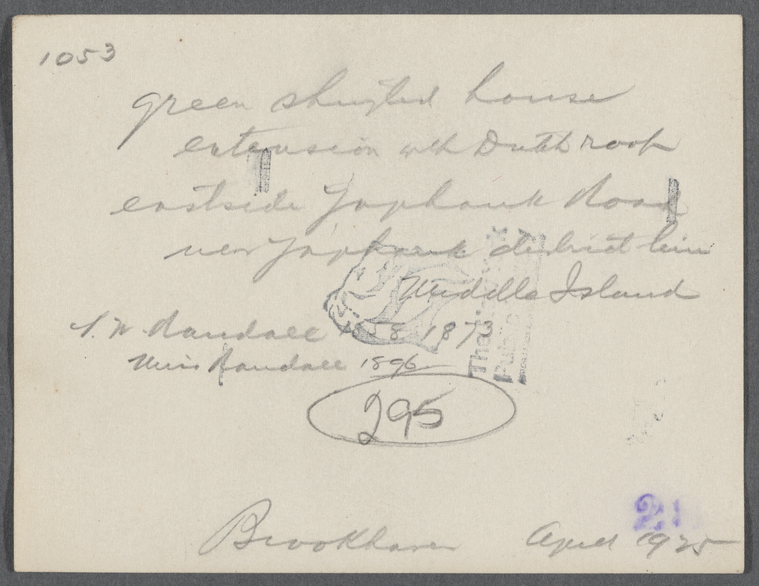 1053
green shingled house
extension with Dutch roof
eastside Yaphank Road
near Yaphank district line
Middle Island
S. W. Randall 1858 1873
Miss Randall 1896
295
The
Public
21
Brookhaven April 1925